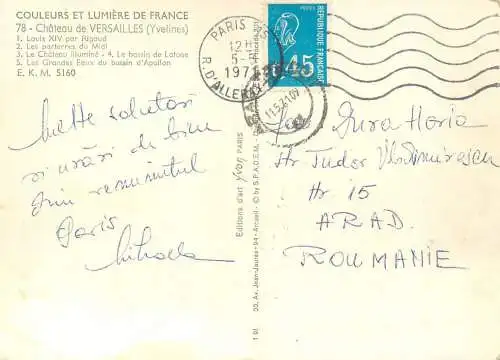 COULEURS ET LUMIÈRE DE FRANCE
78 - Château de VERSAILLES (Yvelines)
1. Louis XIV par Rigaud
2. Les parterres du Midi
3. Le Château illuminé - 4. Le bassin de Latone
5. Les Grandes Eaux du bassin d'Apollon
E. K. M. 5160
PARIS
12H
5-5
1971
R. D'ALLERAY
REPUBLIQUE FRANÇAISE
POSTES
0.45
ARAD
11.5.71.07
Multe salutari
si urări de bine
din renumitul
Paris
Editions d'art yvon PARIS
20, Av. Jean-Jaurès - 94 - Arcueil - © by S.P.A.D.E.M.
1 91
Gura Horia
Str Tudor Vladimirescu
Nr 15
ARAD.
ROUMANIE